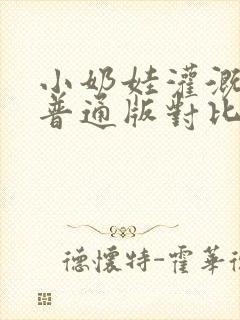 小奶娃灌溉
普通版對比
德懷特-霍華德